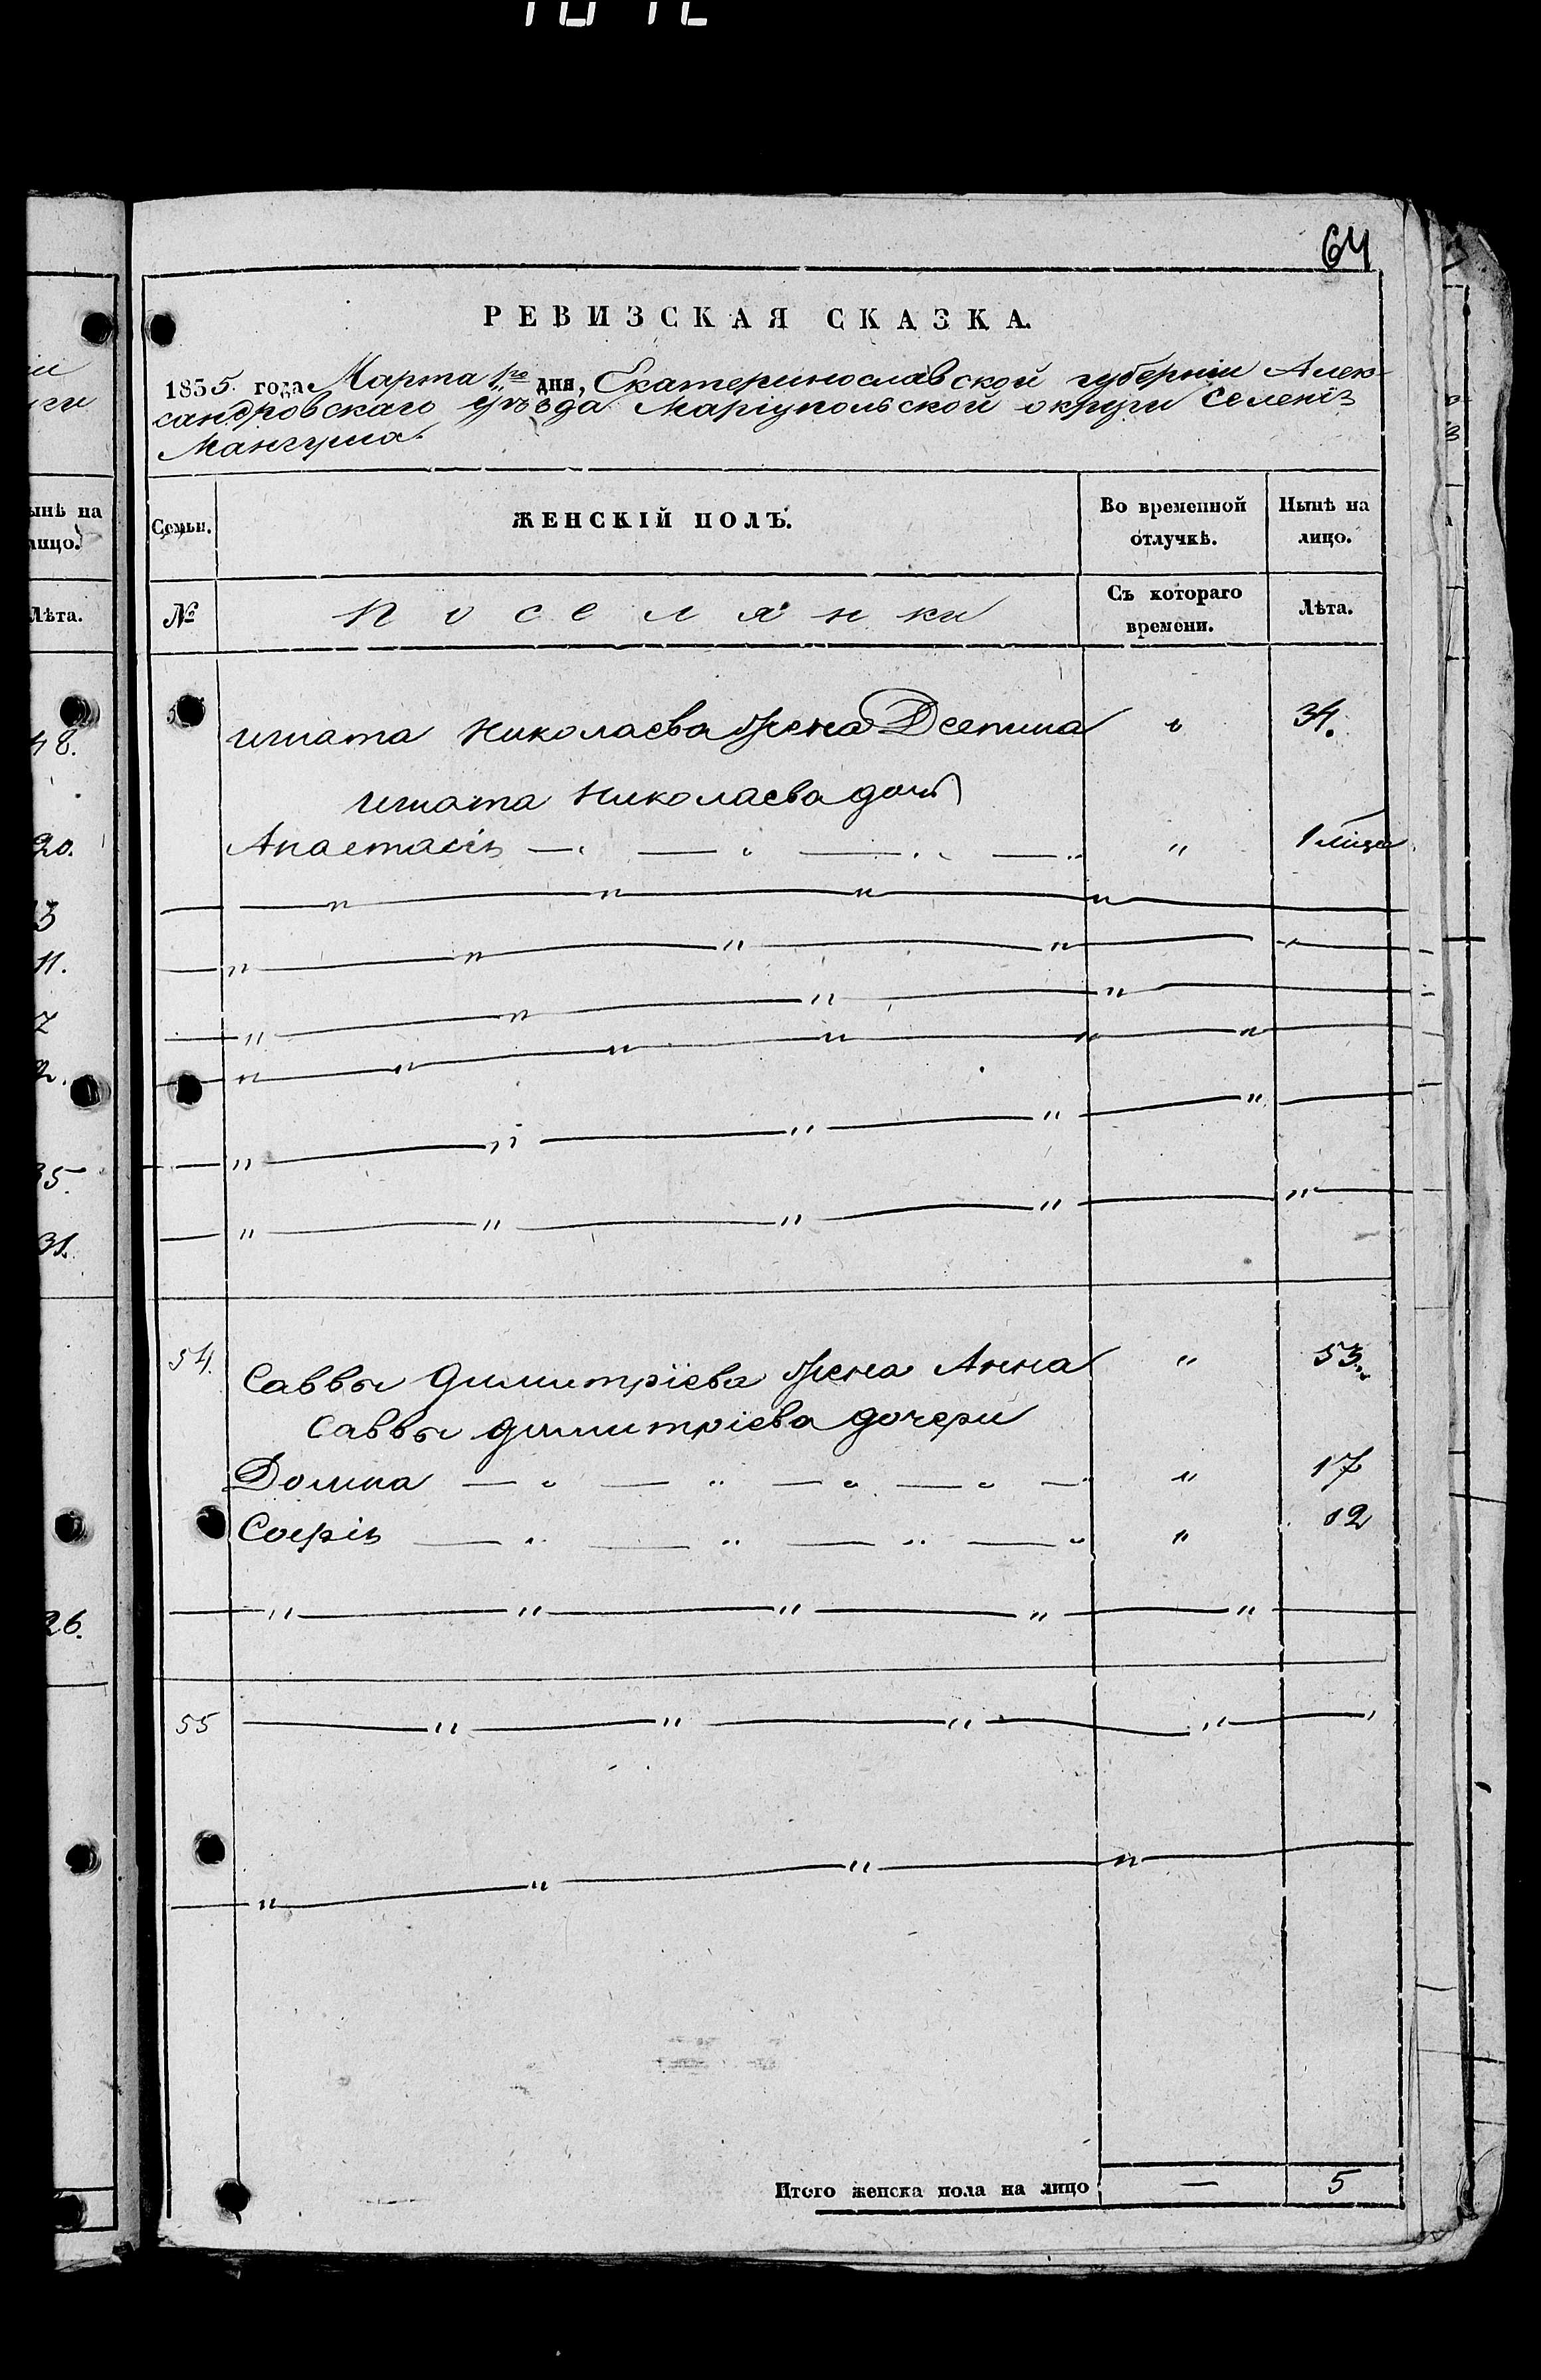 64
РЕВИЗСКАЯ СКАЗКА.
1855 года Марта 1го дня, Екатеринославской губерніи Алек-
сандровскаго уѣзда Маріупольской округи селенія
Мангуша.
Семьи.
ЖЕНСКІЙ ПОЛЪ.
Во временной отлучкѣ.
Нынѣ на лицо.
№
Поселянки
Съ котораго времени.
Лѣта.
Игната Николаева жена Деспина " 34.
Игната Николаева дочь
Анастасія — " — " — " — " " 1
54. Саввы Димитріева жена Анна " 53.
Саввы Димитріева дочери
Домна — " — " — " — " — " 17
Софія — " — " — " — " " 12
55 — " — " — " — " — "
Итого женска пола на лицо — 5
ынѣ на
лицо.
Лѣта.
48.
20.
13
11.
7
2.
35.
31.
26.